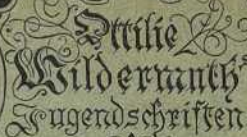 Ottilie
Wildermuth's
Jugendschriften